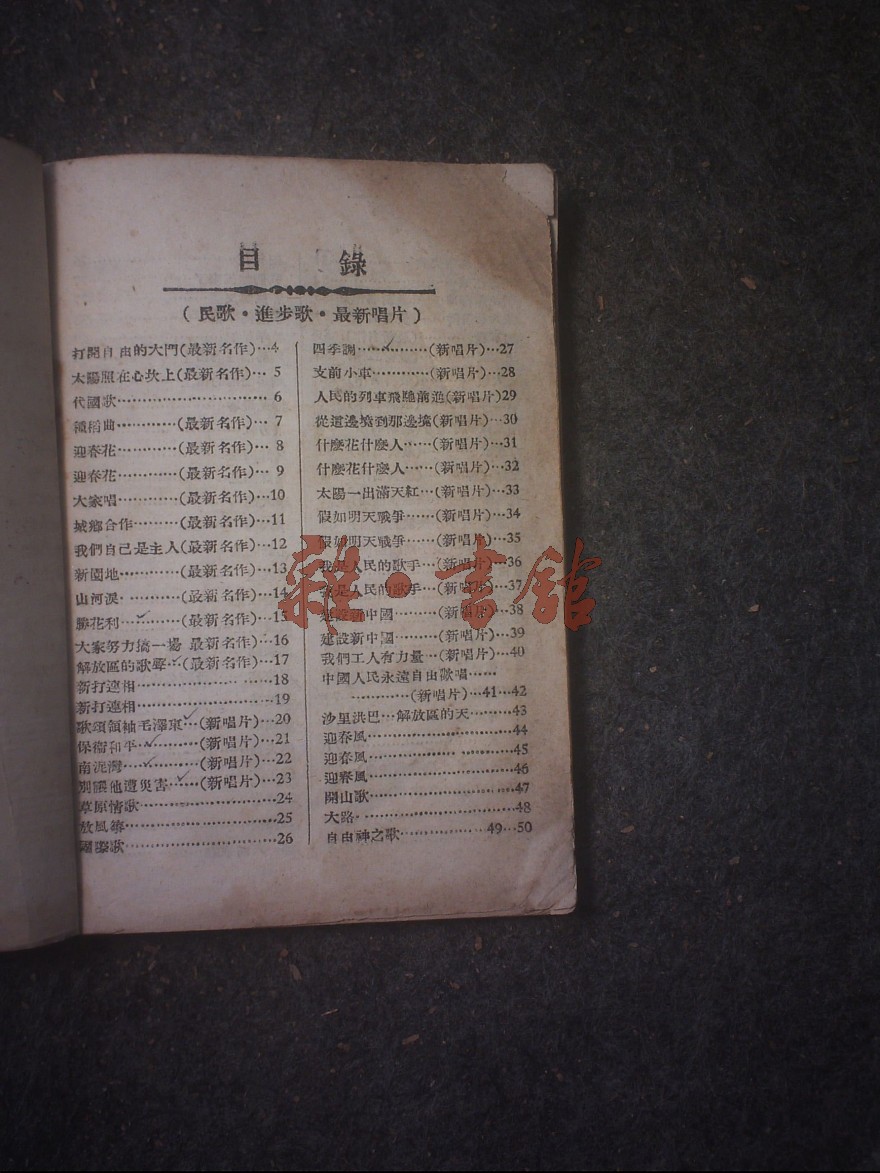 目 錄
(民歌•進步歌•最新唱片)
打開自由的大門(最新名作)…4
太陽照在心坎上(最新名作)…5
代國歌…………………………6
種稻曲…………(最新名作)…7
迎春花…………(最新名作)…8
迎春花…………(最新名作)…9
大家唱…………(最新名作)…10
城鄉合作………(最新名作)…11
我們自己是主人(最新名作)…12
新園地…………(最新名作)…13
山河淚…………(最新名作)…14
勝花利…………(最新名作)…15
大家努力搞一場 最新名作)…16
解放區的歌聲…(最新名作)…17
新打連相………………………18
新打連相………………………19
歌頌領袖毛澤東…(新唱片)…20
保衛和平………(新唱片)…21
南泥灣…………(新唱片)…22
別讓他遭災害……(新唱片)…23
草原情歌………………………24
放風箏…………………………25
歌…………………………26
四季調……………(新唱片)…27
支前小車…………(新唱片)…28
人民的列車飛馳前進(新唱片)29
從這邊壕到那邊壕(新唱片)…30
什麼花什麼人……(新唱片)…31
什麼花什麼人……(新唱片)…32
太陽一出滿天紅…(新唱片)…33
假如明天戰爭……(新唱片)…34
假如明天戰爭……(新唱片)…35
我是人民的歌手…(新唱片)…36
我是人民的歌手…(新唱片)…37
建設新中國………(新唱片)…38
建設新中國………(新唱片)…39
我們工人有力量…(新唱片)…40
中國人民永遠自由歌唱……
…………(新唱片)…41…42
沙里洪巴…解放區的天………43
迎春風…………………………44
迎春風…………………………45
迎春風…………………………46
開山歌…………………………47
大路……………………………48
自由神之歌………………49…50
雜•書館